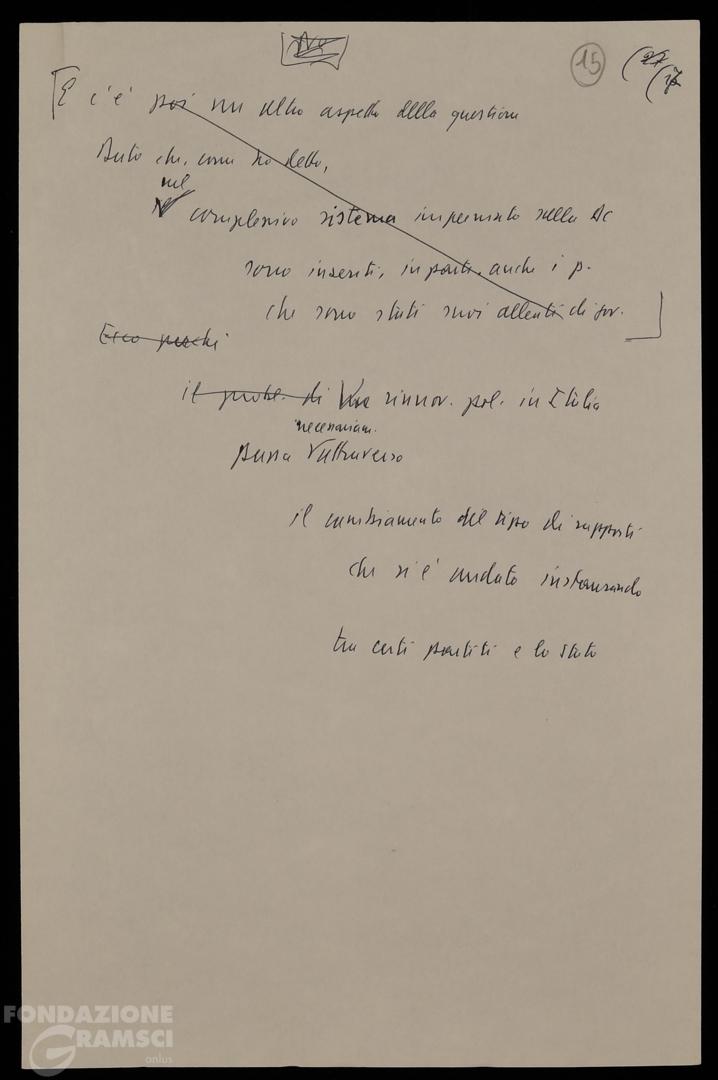 15 (27
(17
[E c'è poi un altro aspetto della questione
Dato che, come ho detto,
nel
complessivo sistema imperniato sulla Dc
sono inseriti, in parte, anche i p.
che sono stati suoi alleati di gov.]
Ecco perché
il probl. di Una rinnov. pol. in Italia
necessariam.
passa attraverso
il cambiamento del tipo di rapporti
che si è andato instaurando
tra certi partiti e lo Stato
FONDAZIONE
GRAMSCI
onlus